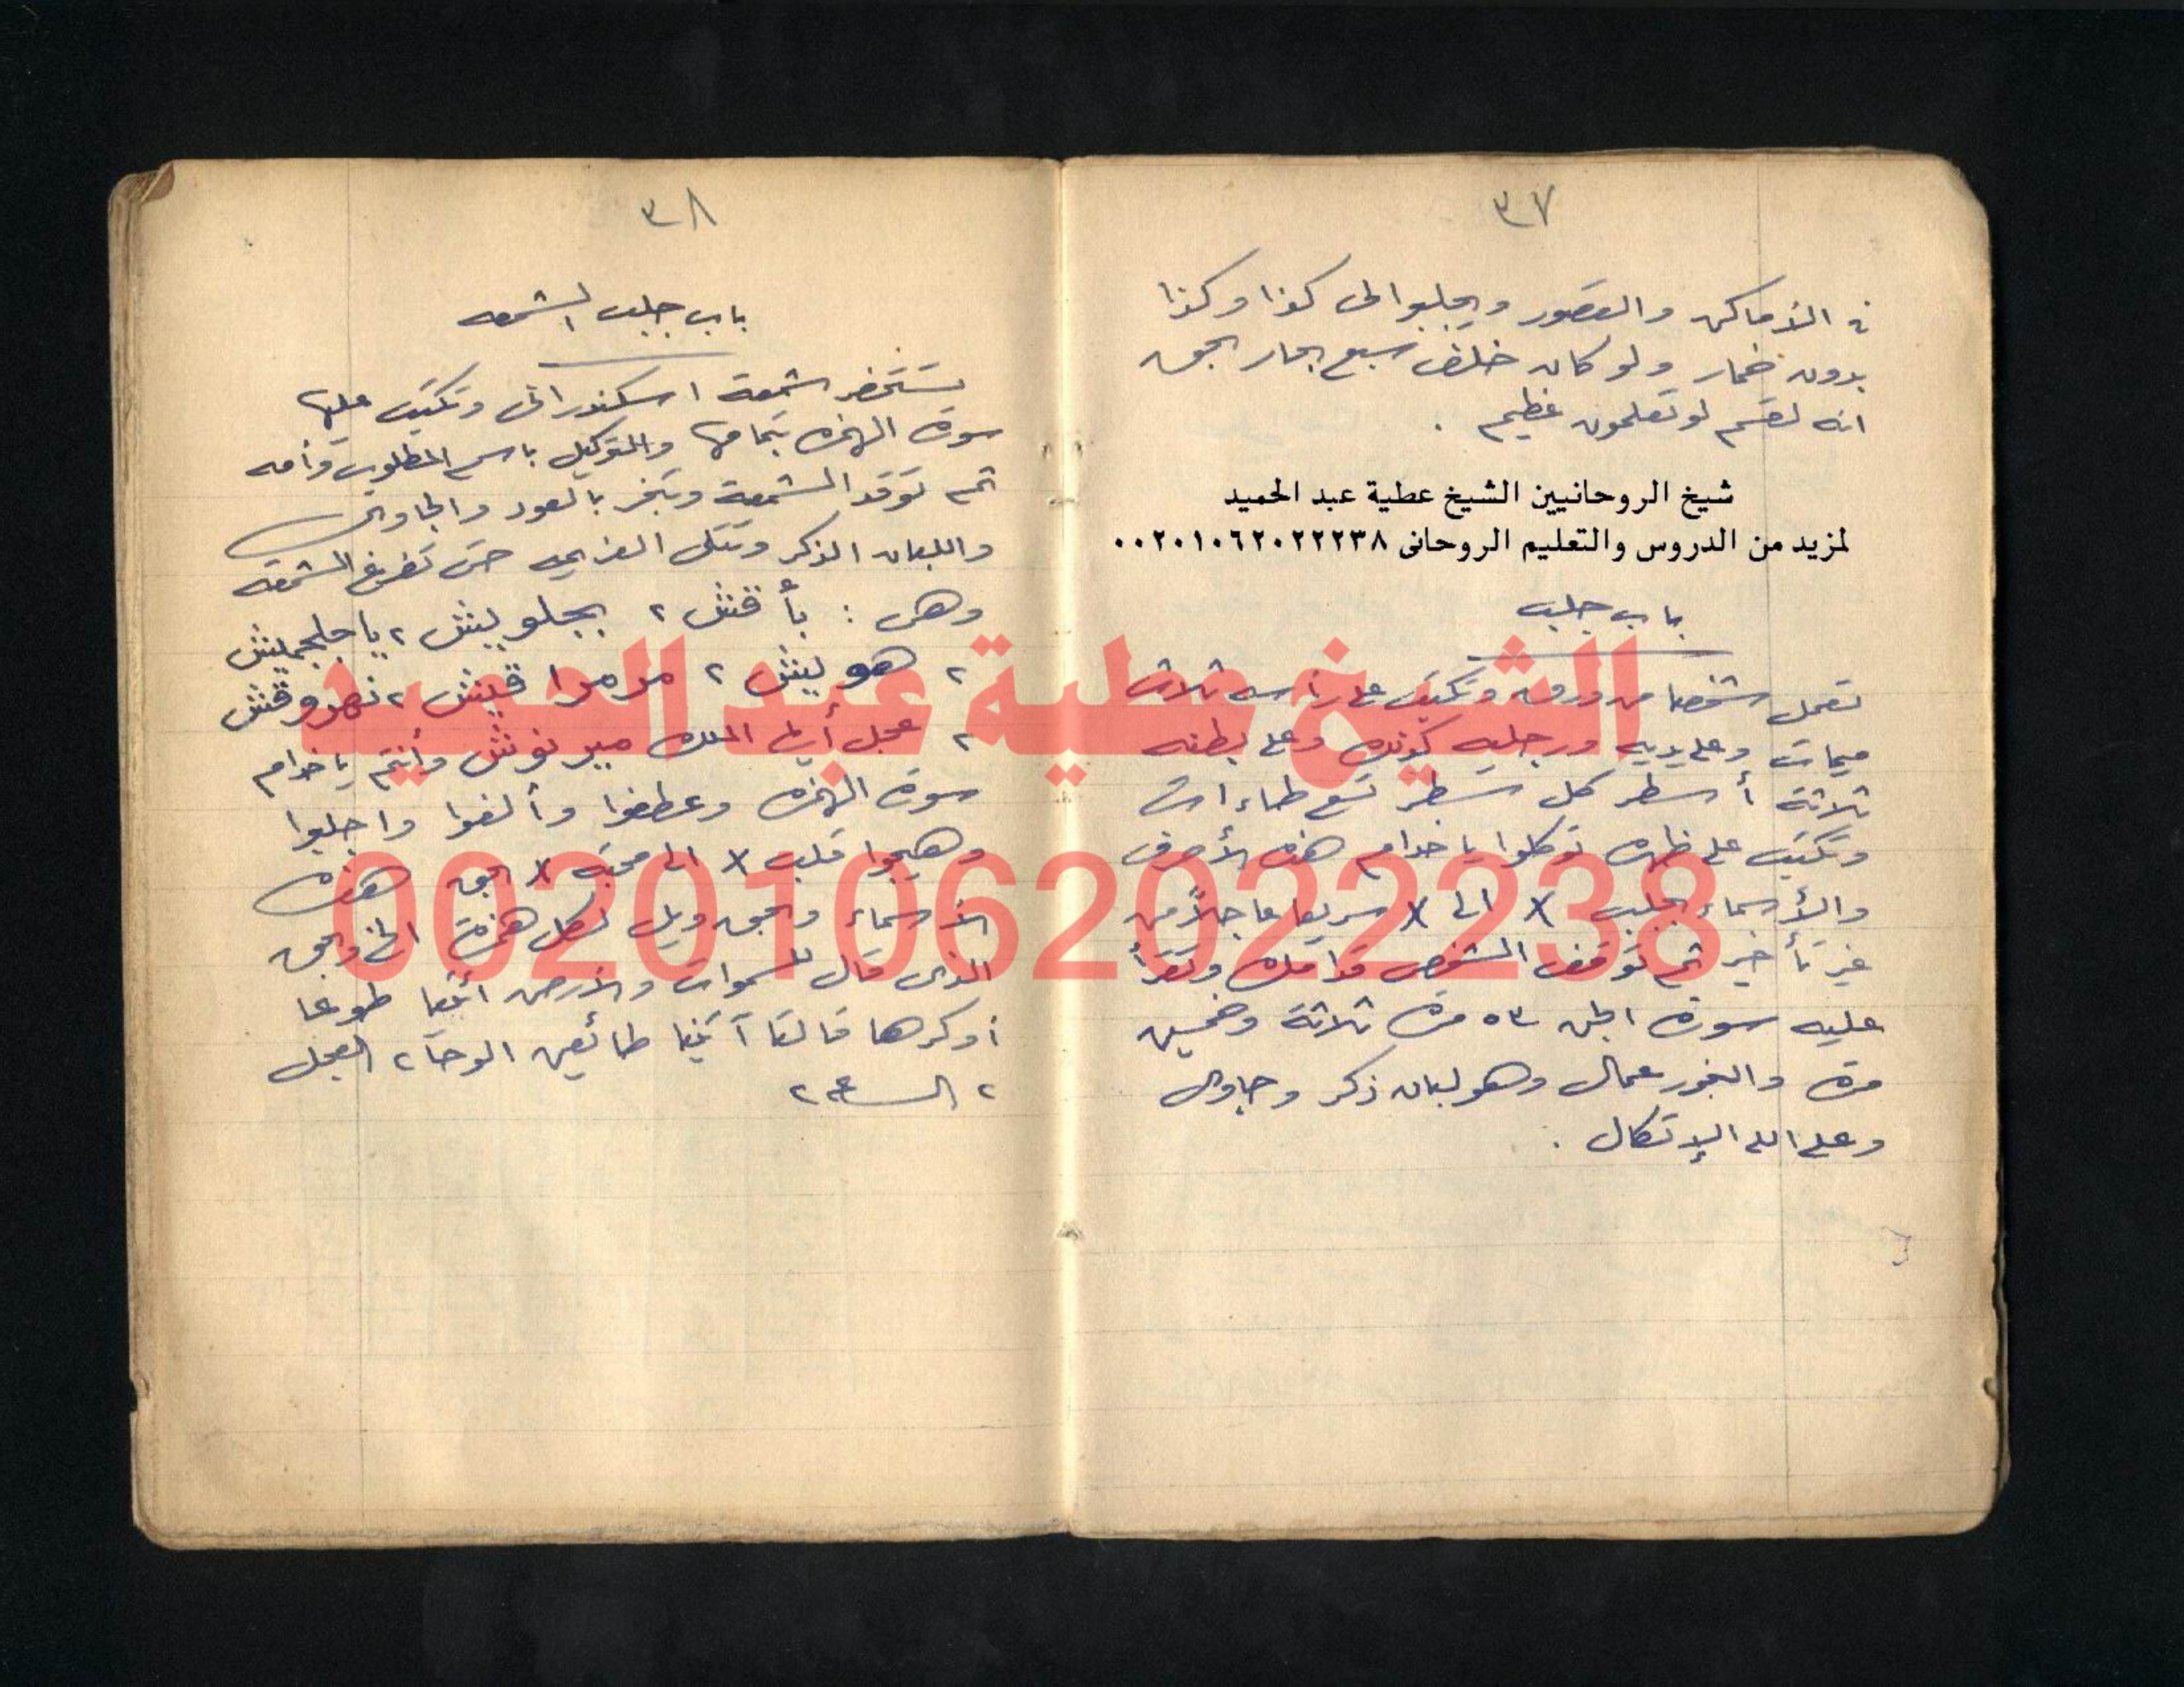 ٣٧
في الأماكن والقصور ويجلبوا لى كذا وكذا
بدون ضمار ولو كان خلف سبع بحار بحق
انه لقسم لو تعلمون عظيم .
شيخ الروحانيين الشيخ عطية عبد الحميد
لمزيد من الدروس والتعليم الروحانى ٠٠٢٠١٠٦٢٠٢٢٢٣٨
باب جلب
تعمل شخصا من ورق وتكتب على رأسه ثلاث
ميمات وعلى يديه ورجليه كذلك وعلى بطنه
ثلاثة أسطر كل سطر تسع طاءات
وتكتب على ظهره توكلوا يا خدام هذه الأحرف
والأسماء بجلب X الى X سريعا عاجلاً من
غير تأخير ثم توقف الشخص قدامك وتقرأ
عليه سورة الجن ٥٣ مرة ثلاثة وخمسين
مرة والبخور عمال وهو لبان ذكر وجاوى
وعلى الله الإتكال .
٣٨
باب جلب الشمعه
تستحضر شمعة اسكندرانى وتكتب عليها
سورة الهمزه بتمامها والتوكيل باسم المطلوب وأمه
ثم توقد الشمعة وتبخر بالعود والجاوى
واللبان الذكر وتتلى العزيمه حتى تفرغ الشمعه
وهى : بأقش ٢ بجلويش ٢ يا جلجميش
٢ هوليش ٢ مرمرا قيش ٢ نهروقش
٢ عجل أيها الملك ميرنوش وأنتم يا خدام
سورة الهمزه وعطفوا وألفوا واجلبوا
وهيجوا قلب X الى محبة X بحق هذه
الأسماء وبحق ويل لكل همزة الخ وبحق
الذى قال للسموات والأرض ائتيا طوعا
أو كرها قالتا آتينا طائعين الوحا ٢ العجل
٢ الساعه ٢
الشيخ عطية عبد الحميد
00201062022238